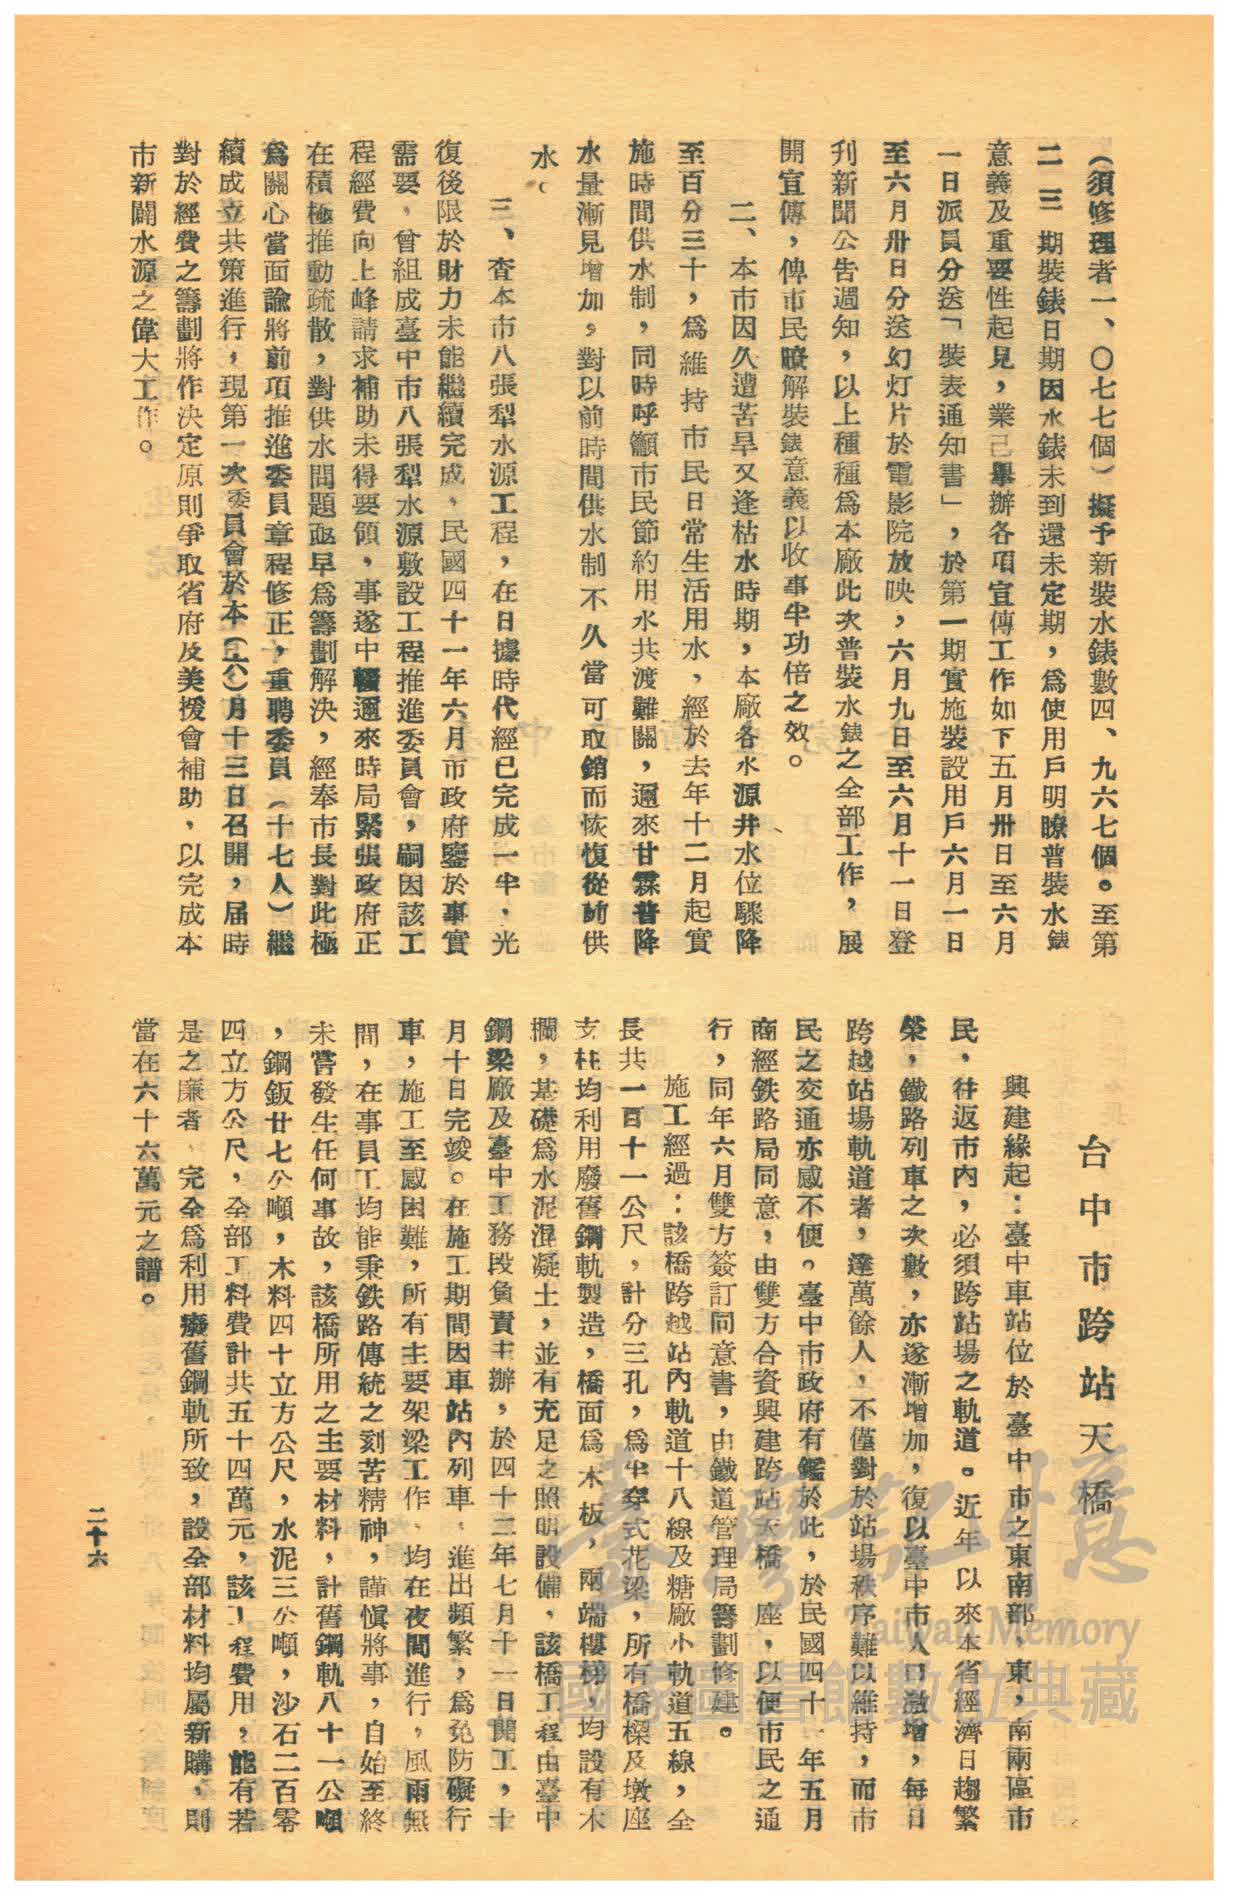 (須修理者一、〇七七個)擬予新裝水錶數四、九六七個。至第
二三期裝錶日期因水錶未到還未定期，爲使用戶明瞭普裝水錶
意義及重要性起見，業已舉辦各項宣傳工作如下五月卅日至六月
一日派員分送「裝表通知書」，於第一期實施裝設用戶六月一日
至六月卅日分送幻灯片於電影院放映，六月九日至六月十一日登
刋新聞公告週知，以上種種爲本廠此次普裝水錶之全部工作，展
開宣傳，俾市民瞭解裝錶意義以收事半功倍之效。
二、本市因久遭苦旱又逢枯水時期，本廠各水源井水位驟降
至百分三十，爲維持市民日常生活用水，經於去年十二月起實
施時間供水制，同時呼籲市民節約用水共渡難關，邇來甘霖普降
水量漸見增加，對以前時間供水制不久當可取銷而恢復從前供
水。
三、查本市八張犁水源工程，在日據時代經已完成一半，光
復後限於財力未能繼續完成，民國四十一年六月市政府鑒於事實
需要，曾組成臺中市八張犁水源敷設工程推進委員會，嗣因該工
程經費向上峰請求補助未得要領，事遂中輟邇來時局緊張政府正
在積極推動疏散，對供水問題亟早爲籌劃解決，經奉市長對此極
爲關心當面諭將前項推進委員章程修正，重聘委員(十七人)繼
續成立共策進行，現第一次委員會於本(六)月十三日召開，屆時
對於經費之籌劃將作決定原則爭取省府及美援會補助，以完成本
市新闢水源之偉大工作。
台中市跨站天橋
興建緣起：臺中車站位於臺中市之東南部，東，南兩區市
民，往返市內，必須跨站場之軌道。近年以來本省經濟日趨繁
榮，鐵路列車之次數，亦遂漸增加，復以臺中市人口激增，每日
跨越站場軌道者，達萬餘人，不僅對於站場秩序難以維持，而市
民之交通亦感不便。臺中市政府有鑑於此，於民國四十一年五月
商經鉄路局同意，由雙方合資興建跨站天橋一座，以便市民之通
行，同年六月雙方簽訂同意書，由鐵道管理局籌劃修建。
施工經過：該橋跨越站內軌道十八線及糖廠小軌道五線，全
長共一百十一公尺，計分三孔，爲半穿式花梁，所有橋樑及墩座
支柱均利用廢舊鋼軌製造，橋面爲木板，兩端樓梯，均設有木
欄，基礎爲水泥混凝土，並有充足之照明設備，該橋工程由臺中
鋼梁廠及臺中工務段負責主辦，於四十二年七月十一日開工，十
月十日完竣。在施工期間因車站內列車，進出頻繁，爲免防礙行
車，施工至感困難，所有主要架梁工作，均在夜間進行，風雨無
間，在事員工均能秉鉄路傳統之刻苦精神，謹愼將事，自始至終
未嘗發生任何事故，該橋所用之主要材料，計舊鋼軌八十一公噸
，鋼鈑廿七公噸，木料四十立方公尺，水泥三公噸，沙石二百零
四立方公尺，全部工料費計共五十四萬元，該工程費用，能有若
是之廉者，完全爲利用廢舊鋼軌所致，設全部材料均屬新購，則
當在六十六萬元之譜。
二十六
臺灣記憶
Taiwan Memory
國家圖書館數位典藏